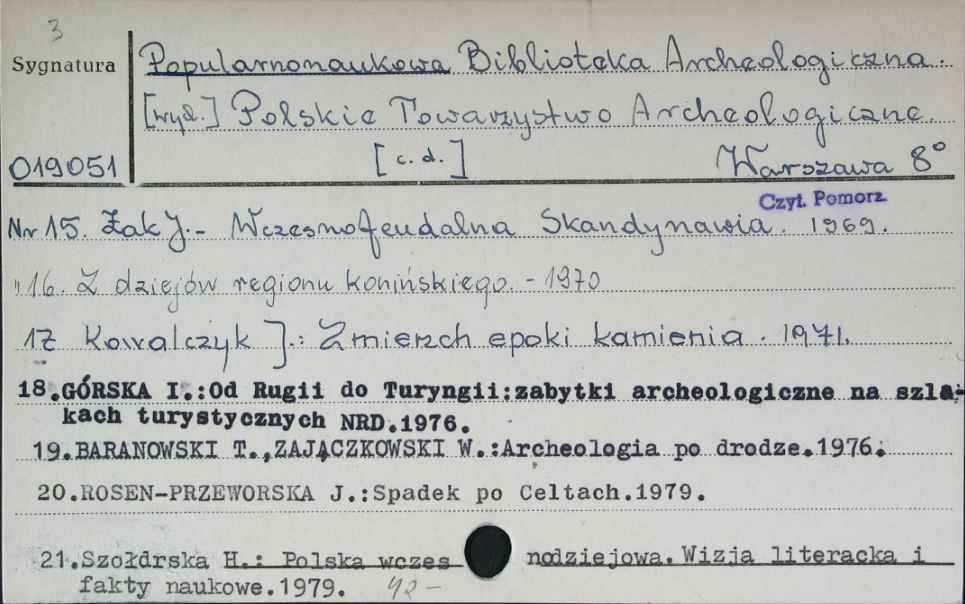 3
Sygnatura
Popularnonaukowa Biblioteka Archeologiczna.
[wyd.] Polskie Towarzystwo Archeologiczne.
019051 [c.d.] Warszawa 8°
Czyt. Pomorz.
Nr 15. Żak J.- Wczesnofeudalna Skandynawia. 1969.
" 16. Z dziejów regionu konińskiego. - 1970
17 Kowalczyk J.: Zmierzch epoki kamienia. 1971.
18.GÓRSKA I.:Od Rugii do Turyngii:zabytki archeologiczne na szla-
kach turystycznych NRD.1976.
19.BARANOWSKI T.,ZAJĄCZKOWSKI W.:Archeologia po drodze.1976.
20.ROSEN-PRZEWORSKA J.:Spadek po Celtach.1979.
21.Szołdrska H.: Polska wczes nodziejowa. Wizja literacka i
fakty naukowe.1979.